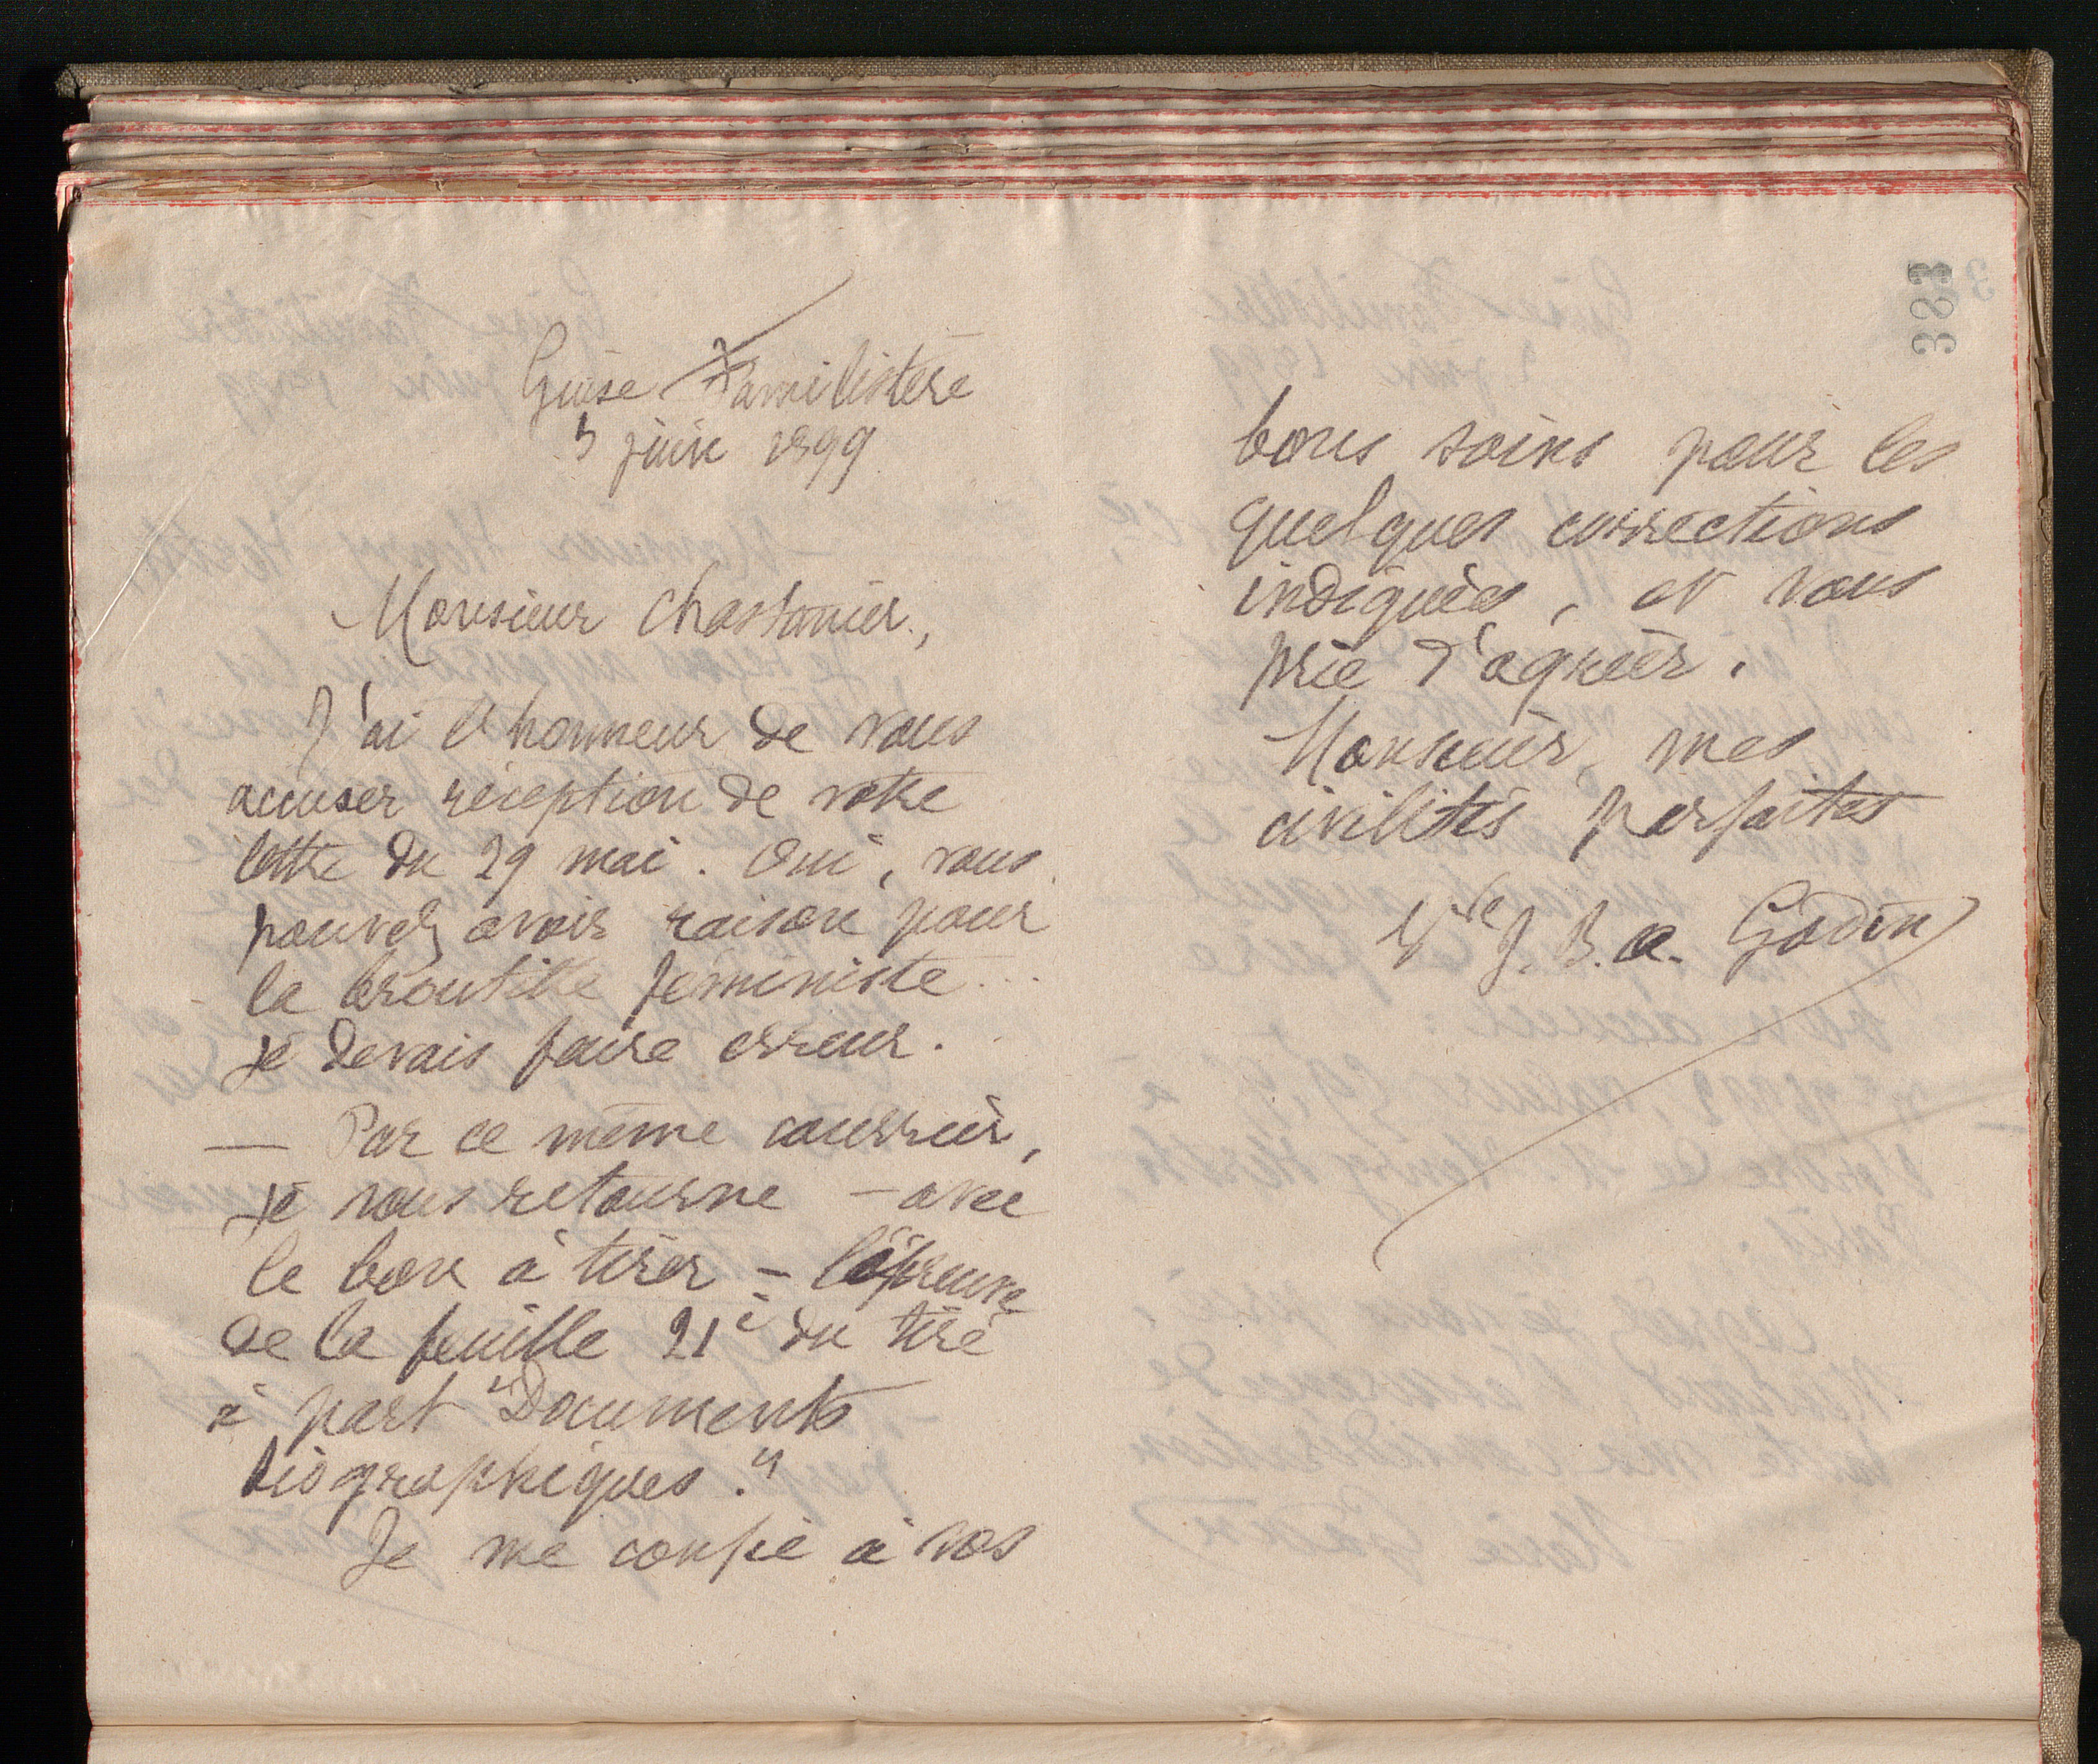 383
Guise Familistère
3 juin 1899
Monsieur Chastanier,
J'ai l'honneur de vous
accuser réception de votre
lettre du 29 mai. Oui, vous
pouvez avoir raison pour
la broutille féministe...
je devais faire erreur.
— Par ce même courrier,
je vous retourne — avec
le bon à tirer — l'épreuve
de la feuille 21e du tiré
à part "Documents
biographiques."
Je me confie à vos
bons soins pour les
quelques corrections
indiquées, et vous
prie d'agréer,
Monsieur, mes
civilités parfaites
Vve J. B. A. Godin